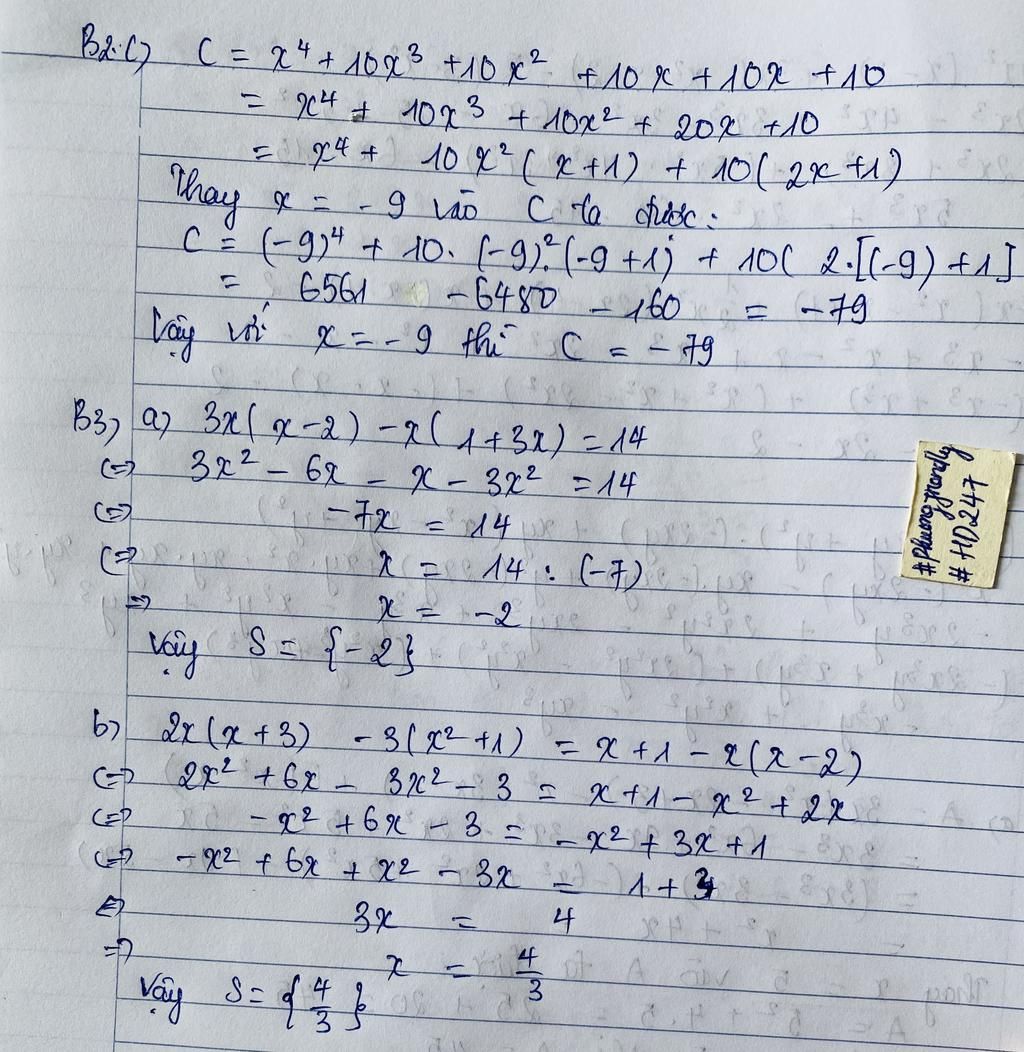 B2.c) C = x⁴ + 10x³ + 10x² + 10x + 10x + 10
= x⁴ + 10x³ + 10x² + 20x + 10
= x⁴ + 10x²(x+1) + 10(2x+1)
Thay x = -9 vào C ta được:
C = (-9)⁴ + 10. (-9)².(-9+1) + 10( 2.[(-9)+1]
= 6561 - 6480 - 160 = -79
Vậy với x = -9 thì C = -79
B3) a) 3x(x-2) - x(1+3x) = 14
(=) 3x² - 6x - x - 3x² = 14
(=) -7x = 14
(=) x = 14 : (-7)
=) x = -2
Vậy S = {-2}
#HD247
b) 2x(x+3) - 3(x²+1) = x+1 - x(x-2)
(=) 2x² + 6x - 3x² - 3 = x+1 - x² + 2x
(=) -x² + 6x - 3 = -x² + 3x + 1
(=) -x² + 6x + x² - 3x = 1 + 3
(=) 3x = 4
=) x = 4/3
Vậy S = {4/3}